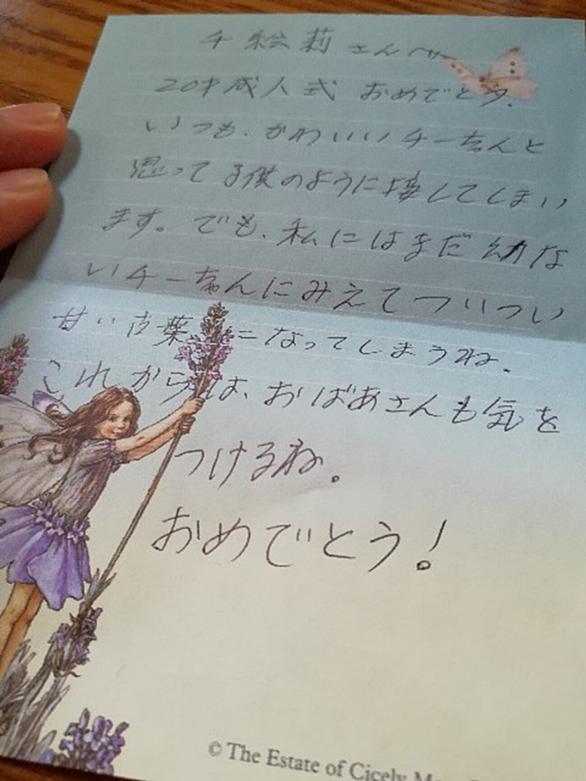 千絵莉さんへ
20才成人式 おめでとう.
いつも、かわいいチーちゃんと
思って子供のように接してしまい
ます。でも、私にはまだ幼な
いチーちゃんにみえてついつい
甘い言葉になってしまうね.
これからは、おばあさんも気を
つけるね。
おめでとう!
© The Estate of Cicely